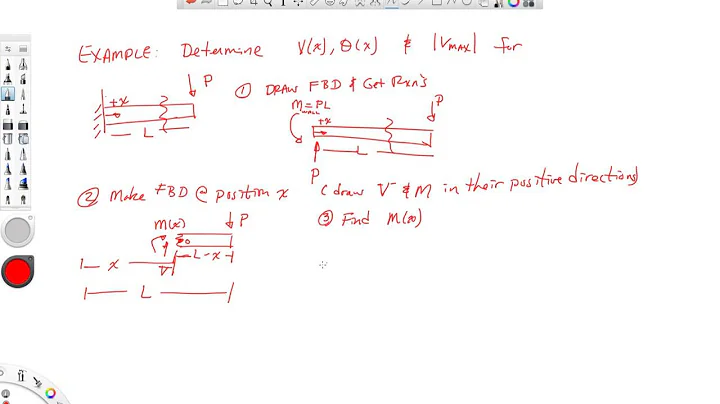 EXAMPLE: Determine V(x), θ(x) & |VMAX| for
+x
P
L
① DRAW FBD & Get Rxn's
M = PL
WALL
+x
P
L
P
② Make FBD @ position x (draw V & M in their positive directions)
③ Find M(x)
M(x)
P
O
L-x
x
V
L